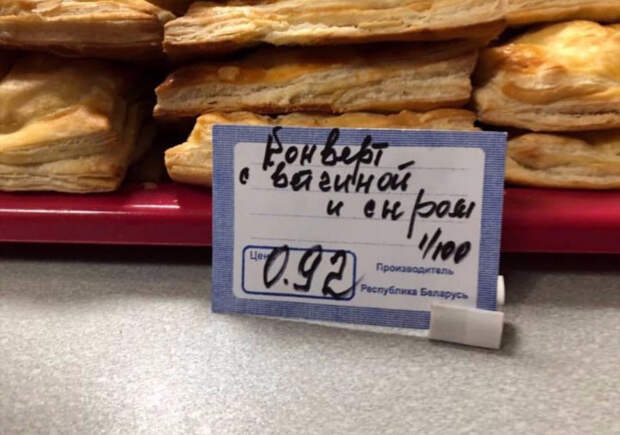 Конверт
с ветчиной
и сыром
1/100
Цена 0.92
Производитель
Республика Беларусь